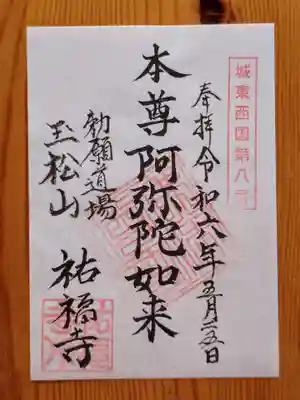 城東西国第八番
奉拝 令和六年五月二五日
本尊阿弥陀如来
勅願道場
玉松山
祐福寺